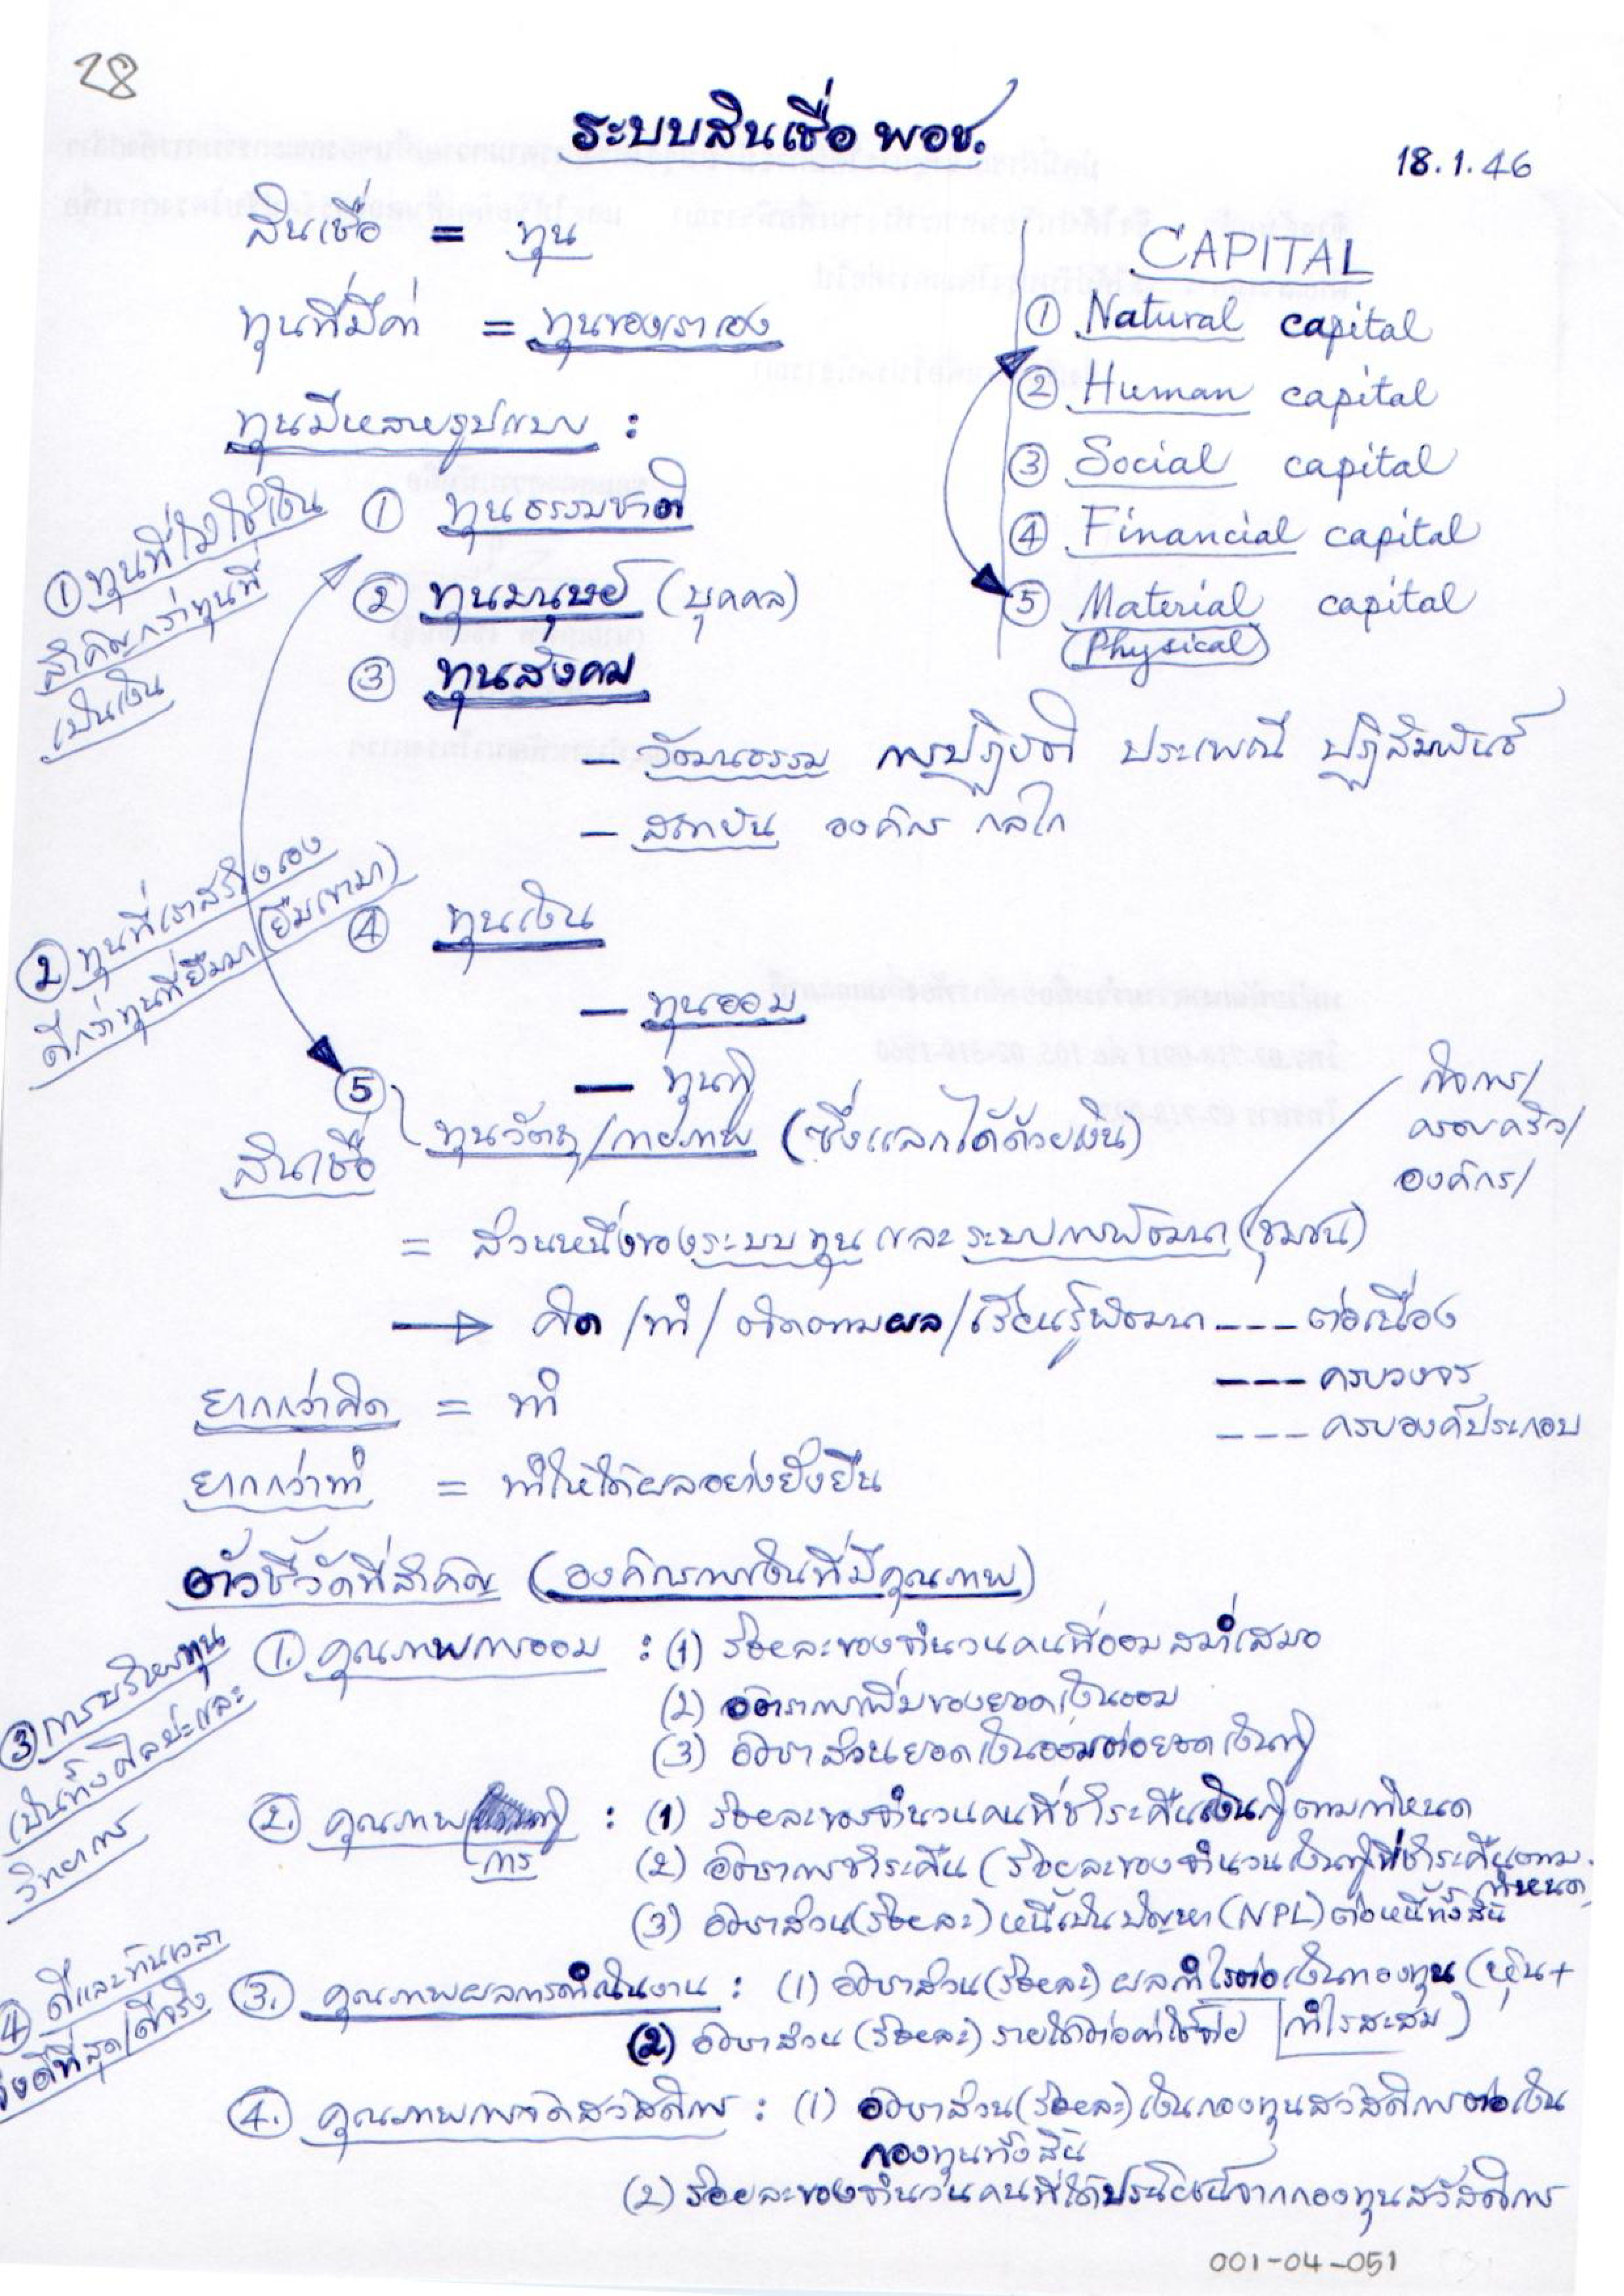 28
ระบบสินเชื่อ พอช.
18.1.46
สินเชื่อ = ทุน
ทุนที่มีค่า = ทุนของเราเอง
ทุนมีหลายรูปแบบ :
① ทุนธรรมชาติ
② ทุนมนุษย์ (บุคคล)
③ ทุนสังคม
– วัฒนธรรม การปฏิบัติ ประเพณี ปฏิสัมพันธ์
– สถาบัน องค์กร กลไก
④ ทุนเงิน
– ทุนออม
– ทุนกู้
⑤ ทุนวัตถุ/กายภาพ (ซึ่งแลกได้ด้วยเงิน)
CAPITAL
① Natural capital
② Human capital
③ Social capital
④ Financial capital
⑤ Material capital
(Physical)
① ทุนที่ไม่ใช่เงิน
สำคัญกว่าทุนที่
เป็นเงิน
② ทุนที่เราสร้างเอง
ดีกว่าทุนที่ยืมมา (ยืมเขามา)
สินเชื่อ
= ส่วนหนึ่งของระบบทุน และ ระบบการพัฒนา (ชุมชน)
กิจการ/
ครอบครัว/
องค์กร/
→ คิด /ทำ/ ติดตามผล/เรียนรู้พัฒนา --- ต่อเนื่อง
--- ครบวงจร
--- ครบองค์ประกอบ
ยากกว่าคิด = ทำ
ยากกว่าทำ = ทำให้ได้ผลอย่างยั่งยืน
ตัวชี้วัดที่สำคัญ (องค์กรการเงินที่มีคุณภาพ)
①. คุณภาพการออม : (1) ร้อยละของจำนวนคนที่ออมสม่ำเสมอ
(2) อัตราการเพิ่มของยอดเงินออม
(3) อัตราส่วนยอดเงินออมต่อยอดเงินกู้
②. คุณภาพการกู้ : (1) ร้อยละของจำนวนคนที่ชำระคืนเงินกู้ตามกำหนด
(2) อัตราการชำระคืน (ร้อยละของจำนวนเงินกู้ที่ชำระคืนตามกำหนด
(3) อัตราส่วน(ร้อยละ) หนี้เป็นปัญหา (NPL) ต่อหนี้ทั้งสิ้น
③. คุณภาพผลการดำเนินงาน : (1) อัตราส่วน(ร้อยละ) ผลกำไรต่อเงินกองทุน (หุ้น+
กำไรสะสม)
(2) อัตราส่วน (ร้อยละ) รายได้ต่อค่าใช้จ่าย
④. คุณภาพการจัดสวัสดิการ : (1) อัตราส่วน(ร้อยละ) เงินกองทุนสวัสดิการต่อเงิน
กองทุนทั้งสิ้น
(2) ร้อยละของจำนวนคนที่ได้ประโยชน์จากกองทุนสวัสดิการ
③ การบริหารทุน
เป็นทั้งศิลปะและ
วิทยาการ
④ ดีและทันเวลา
จึงดีที่สุด/ดีจริง
001-04-051